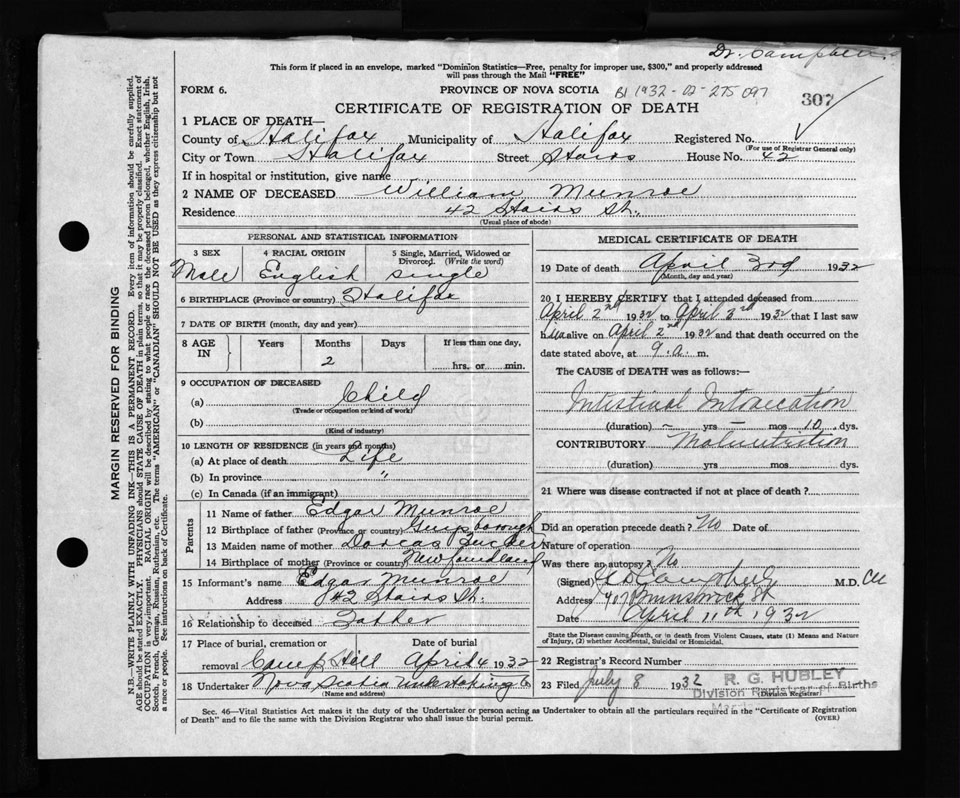 Dr. Campbell
This form if placed in an envelope, marked "Dominion Statistics—Free, penalty for improper use, $300," and properly addressed
will pass through the Mail "FREE"
FORM 6.
PROVINCE OF NOVA SCOTIA
1932-02-275097
307
CERTIFICATE OF REGISTRATION OF DEATH
1 PLACE OF DEATH—
County of Halifax Municipality of Halifax Registered No.
(For use of Registrar General only)
City or Town Halifax Street Stairs House No. 42
If in hospital or institution, give name
2 NAME OF DECEASED William Munroe
Residence 42 Stairs St.
(Usual place of abode)
PERSONAL AND STATISTICAL INFORMATION
3 SEX 4 RACIAL ORIGIN 5 Single, Married, Widowed or Divorced. (Write the word)
Male English single
6 BIRTHPLACE (Province or country) Halifax
7 DATE OF BIRTH (month, day and year)
8 AGE IN Years Months Days If less than one day,
2 hrs. or min.
9 OCCUPATION OF DECEASED
(a) Child
(Trade or occupation or kind of work)
(b)
(Kind of industry)
10 LENGTH OF RESIDENCE (in years and months)
(a) At place of death Life
(b) In province "
(c) In Canada (if an immigrant)
Parents
11 Name of father Edgar Munroe
12 Birthplace of father (Province or country)
13 Maiden name of mother Dorcas
14 Birthplace of mother (Province or country) Newfoundland
15 Informant's name Edgar Munroe
Address 42 Stairs St.
16 Relationship to deceased Father
17 Place of burial, cremation or Date of burial
removal Camp Hill April 4 1932
18 Undertaker Nova Scotia Undertaking Co
(Name and address)
MEDICAL CERTIFICATE OF DEATH
19 Date of death April 3rd 1932
(Month, day and year)
20 I HEREBY CERTIFY that I attended deceased from
April 2nd 1932 to April 3rd 1932 that I last saw
him alive on April 2nd 1932 and that death occurred on the
date stated above, at 9. a. m.
The CAUSE of DEATH was as follows:—
Intestinal Intoxication
(duration) – yrs – mos 10 dys.
CONTRIBUTORY Malnutrition
(duration) yrs mos dys.
21 Where was disease contracted if not at place of death?
Did an operation precede death? No Date of
Nature of operation
Was there an autopsy? No
(Signed) Campbell M.D.
Address 407 Brunswick St
Date April 11th 1932
State the Disease causing Death, or in death from Violent Causes, state (1) Means and Nature
of Injury, (2) whether Accidental, Suicidal or Homicidal.
22 Registrar's Record Number
23 Filed July 8 1932 R. G. HUBLEY
Division Registrar of Births
(Division Registrar)
Sec. 46—Vital Statistics Act makes it the duty of the Undertaker or person acting as Undertaker to obtain all the particulars required in the "Certificate of Registration
of Death" and to file the same with the Division Registrar who shall issue the burial permit.
(OVER)
MARGIN RESERVED FOR BINDING
N.B.—WRITE PLAINLY WITH UNFADING INK—THIS IS A PERMANENT RECORD. Every item of information should be carefully supplied.
AGE should be stated EXACTLY. PHYSICIANS should STATE CAUSE OF DEATH in plain terms, so that it may be properly classified. Exact statement of
OCCUPATION is very important. RACIAL ORIGIN will be described by stating to what people or race the deceased person belonged, whether English, Irish,
Scotch, French, German, Russian, Ruthenian, etc. The terms "AMERICAN" or "CANADIAN" SHOULD NOT BE USED as they express citizenship but not
a race or people. See instructions on back of Certificate.